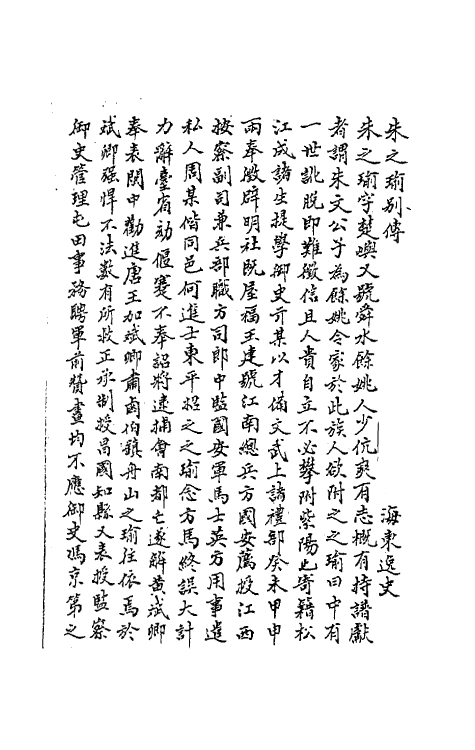 朱之瑜別傳
海東逸史
朱之瑜字楚嶼又號舜水餘姚人少伉爽有志概有持譜獻
者謂朱文公子為餘姚令家於此族人欲附之之瑜曰中有
一世訛脫即難徵信且人貴自立不必攀附紫陽也寄籍松
江成諸生提學御史亓某以才備文武上諸禮部癸未甲申
兩奉徵辟明社既屋福王建號江南總兵方國安薦授江西
按察副司兼兵部職方司郎中監國安軍馬士英方用事遣
私人周某偕同邑何進士東平招之之瑜念方馬終誤大計
力辭臺省劾偃蹇不奉詔將逮捕會南都亡遂解黃斌卿
奉表閩中勸進唐王加斌卿肅鹵伯鎮舟山之瑜往依焉於
斌卿強悍不法數有所救正承制授昌國知縣又表授監察
御史管理屯田事務聘軍前贊畫均不應御史馮京第之